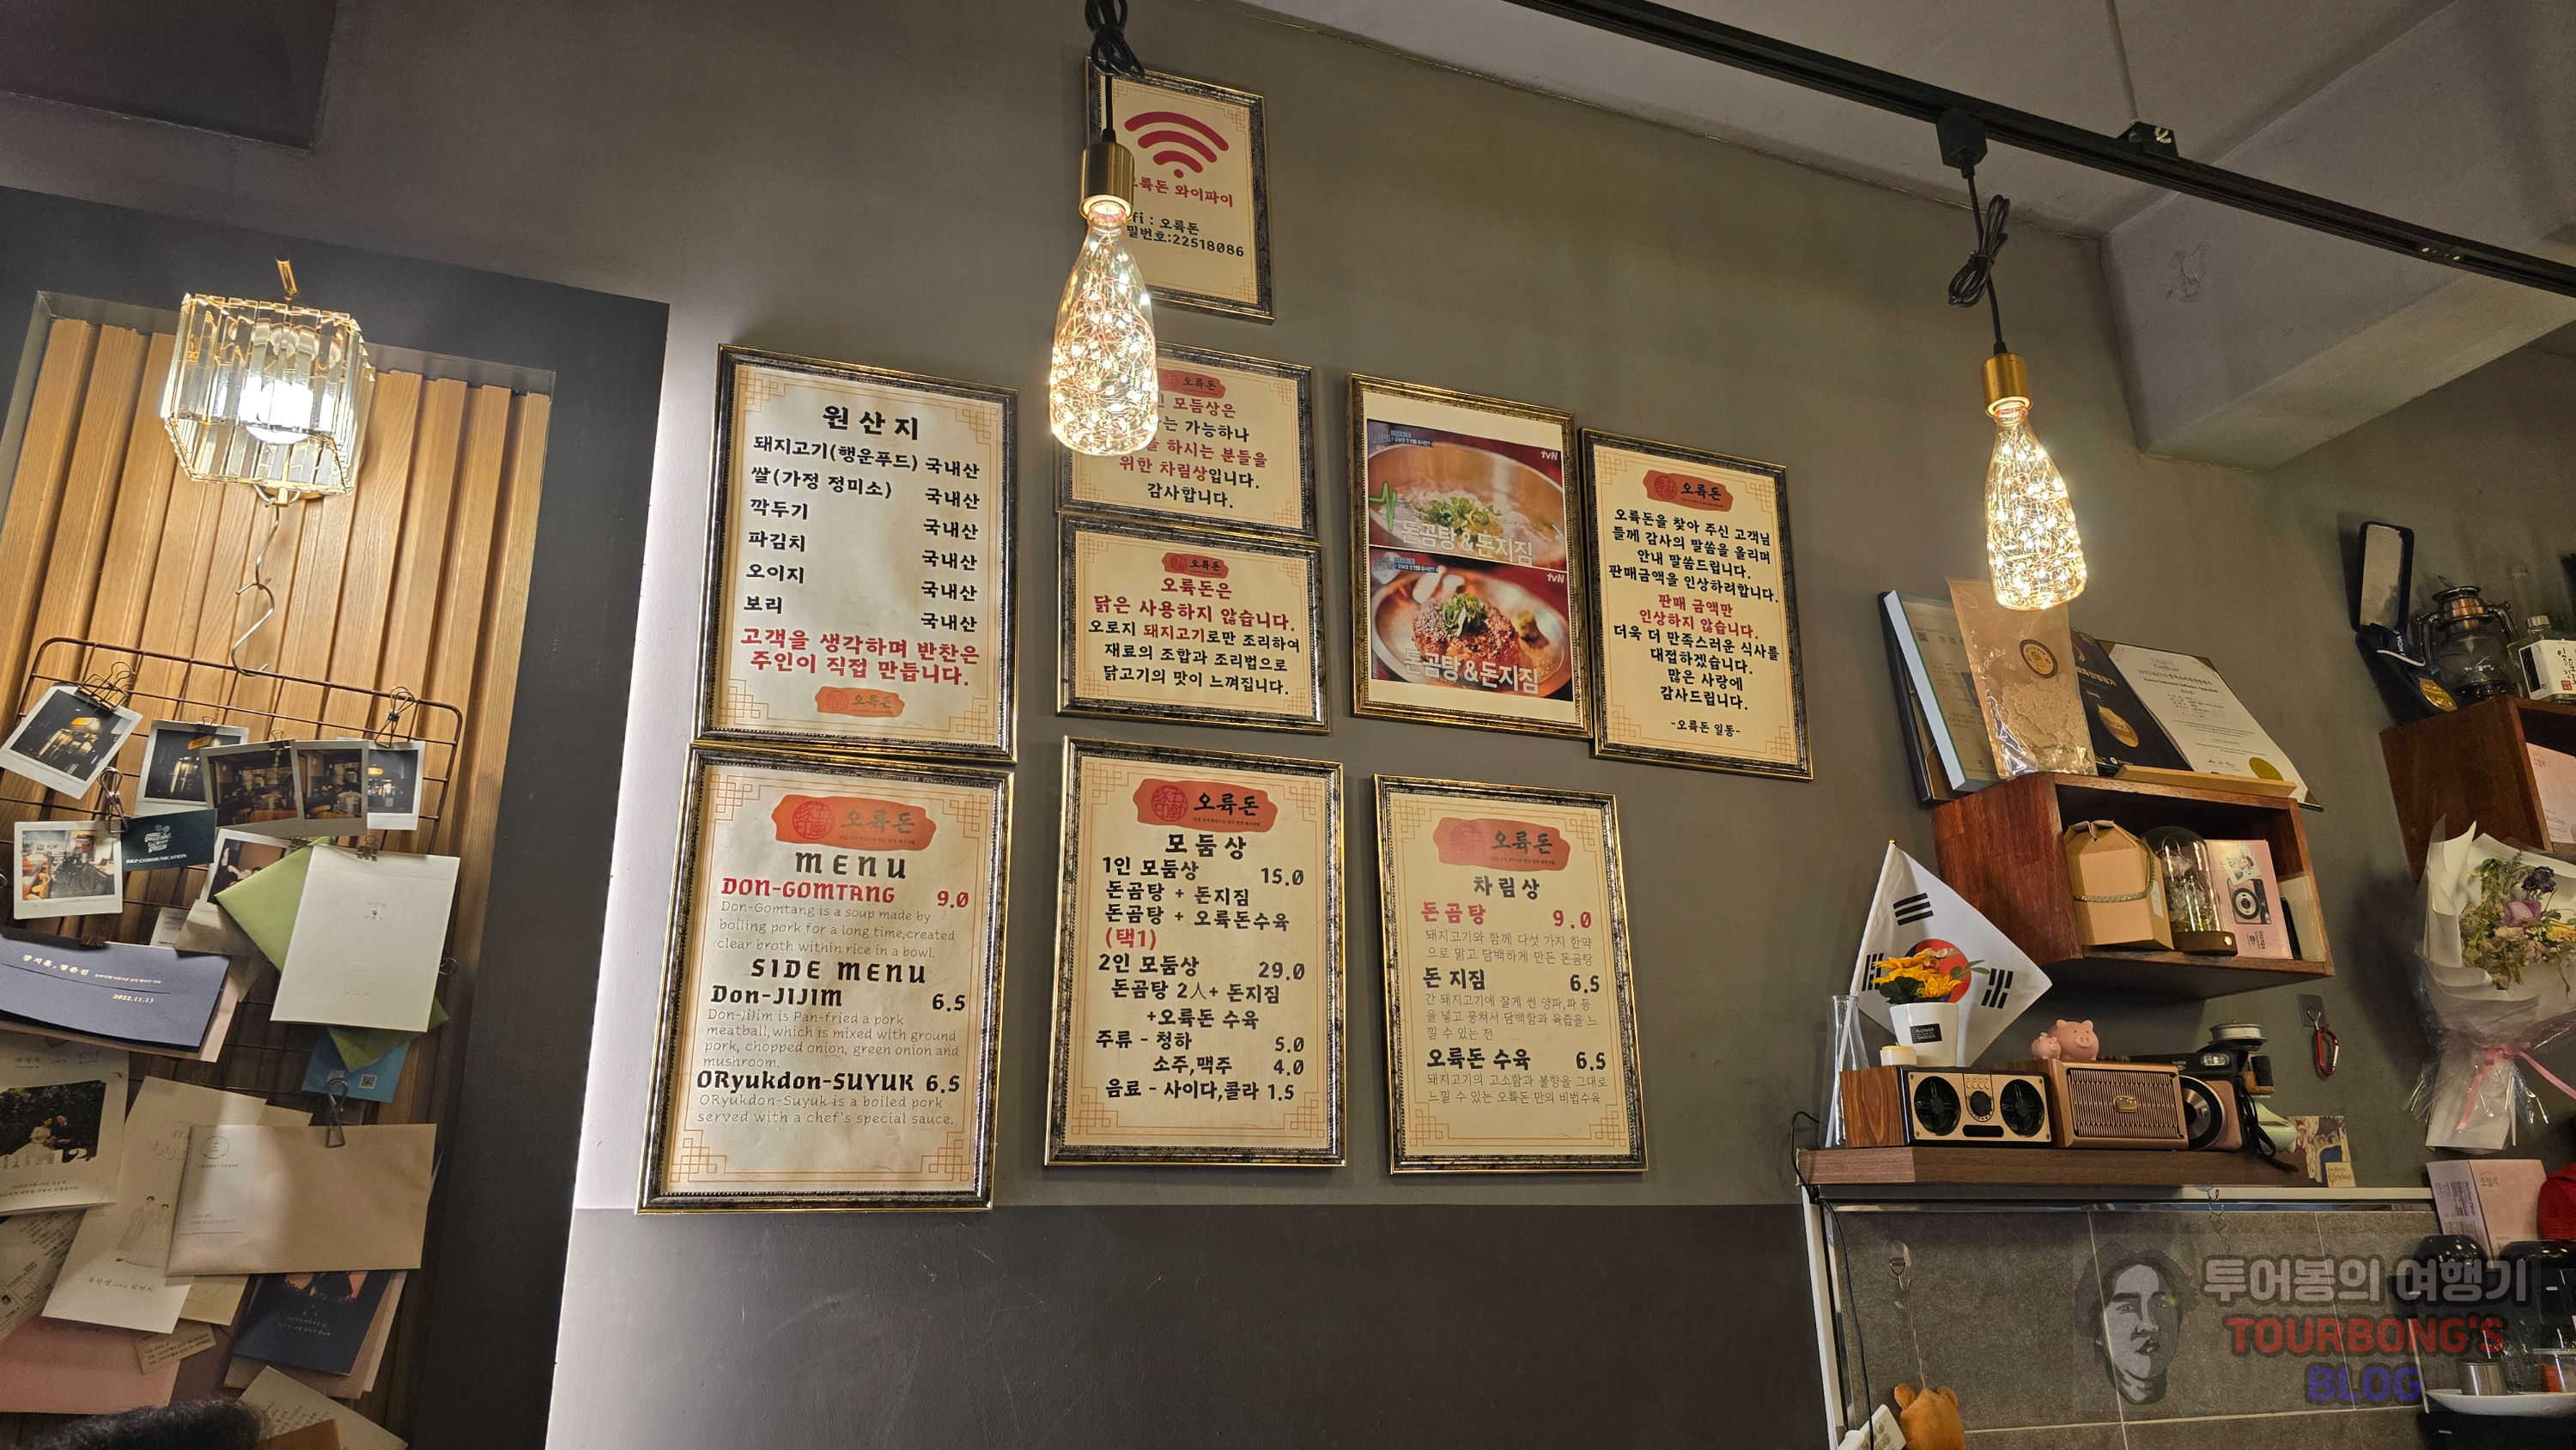 와이파이
오륙돈
밀번호:22518086
원산지
돼지고기(행운푸드) 국내산
쌀(가정 정미소) 국내산
깍두기 국내산
파김치 국내산
오이지 국내산
보리 국내산
고객을 생각하며 반찬은
주인이 직접 만듭니다.
오륙돈
오륙돈
모둠상은
는 가능하나
하시는 분들을
위한 차림상입니다.
감사합니다.
오륙돈
오륙돈은
닭은 사용하지 않습니다.
오로지 돼지고기로만 조리하여
재료의 조합과 조리법으로
닭고기의 맛이 느껴집니다.
tvN
돈곰탕&돈지짐
tvN
돈곰탕&돈지짐
오륙돈
오륙돈을 찾아 주신 고객님
들께 감사의 말씀을 올리며
안내 말씀드립니다.
판매금액을 인상하려합니다.
판매 금액만
인상하지 않습니다.
더욱 더 만족스러운 식사를
대접하겠습니다.
많은 사랑에
감사드립니다.
-오륙돈 일동-
오륙돈
MENU
DON-GOMTANG 9.0
Don-Gomtang is a soup made by
boiling pork for a long time,created
clear broth within rice in a bowl.
SIDE MENU
Don-JIJIM 6.5
Don-JiJim is Pan-fried a pork
meatball,which is mixed with ground
pork, chopped onion, green onion and
mushroom.
ORyukdon-SUYUK 6.5
ORyukdon-Suyuk is a boiled pork
served with a chef's special sauce.
오륙돈
모둠상
1인 모둠상 15.0
돈곰탕 + 돈지짐
돈곰탕 + 오륙돈수육
(택1)
2인 모둠상 29.0
돈곰탕 2人+ 돈지짐
+오륙돈 수육
주류 - 청하 5.0
소주,맥주 4.0
음료 - 사이다,콜라 1.5
오륙돈
차림상
돈곰탕 9.0
돼지고기와 함께 다섯 가지 한약
으로 맑고 담백하게 만든 돈곰탕
돈 지짐 6.5
간 돼지고기에 잘게 썬 양파,파 등
을 넣고 뭉쳐서 담백함과 육즙을 느
낄 수 있는 전
오륙돈 수육 6.5
돼지고기의 고소함과 불향을 그대로
느낄 수 있는 오륙돈 만의 비법수육
2022.11.13
투어봉의 여행기
TOURBONG'S
BLOG